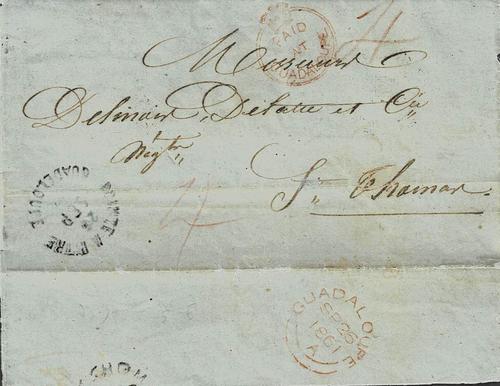 PAID
AT
GUADALOUPE
4
Messieurs
Delinois, Delatie et Cie
Negts
St Thomas
POINTE A PITRE
GUADELOUPE
SEP
4
GUADALOUPE
SP 26
1861
A
THOM